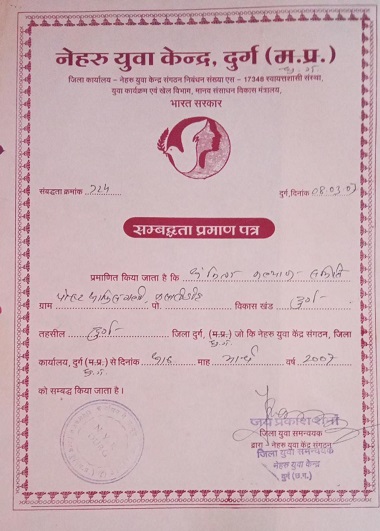 नेहरु युवा केन्द्र, दुर्ग (म.प्र.)
छ.ग.
जिला कार्यालय – नेहरु युवा केन्द्र संगठन निबंधन संख्या एस – 17348 स्वायत्तशासी संस्था,
युवा कार्यक्रम एवं खेल विभाग, मानव संसाधन विकास मंत्रालय,
भारत सरकार
संबद्धता क्रमांक 724 दुर्ग,दिनांक 08.03.07
सम्बद्धता प्रमाण पत्र
प्रमाणित किया जाता है कि समिति
ग्राम पो. विकास खंड दुर्ग
तहसील दुर्ग जिला दुर्ग, (म.प्र.) जो कि नेहरु युवा केंद्र संगठन, जिला
छ.ग.
कार्यालय, दुर्ग (म.प्र.) से दिनांक आठ माह मार्च वर्ष 2007
छ.ग.
को सम्बद्ध किया जाता है।
जिला युवा समन्वयक
द्वारा नेहरु युवा केंद्र संगठन
जिला युवा समन्वयक
नेहरु युवा केन्द्र
दुर्ग (छ.ग.)